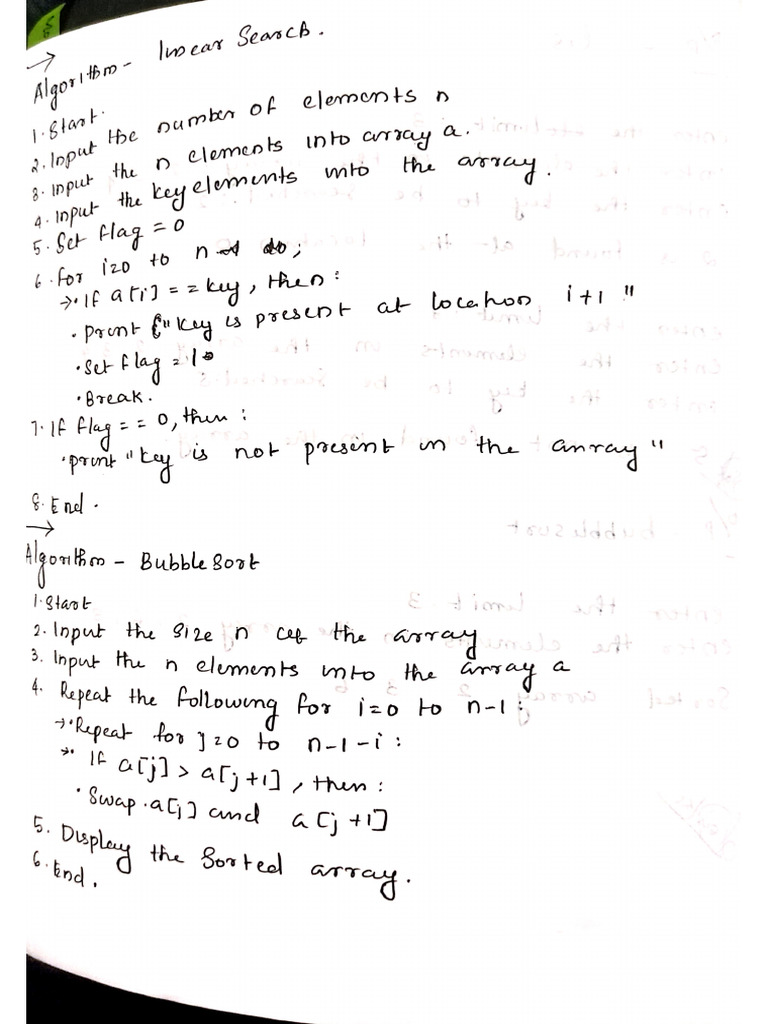 →
Algorithm - linear Search.
1. Start.
2. Input the number of elements n
3. Input the n elements into array a.
4. Input the key elements into the array.
5. Set flag = 0
6. for i=0 to n do;
→ • If a[i] == key, then:
• print "key is present at location i+1"
• Set flag = 1
• Break.
7. If flag == 0, then:
• print "key is not present in the array"
8. End.
→
Algorithm - Bubble Sort
1. Start
2. Input the size n of the array
3. Input the n elements into the array a
4. Repeat the following for i=0 to n-1:
→ • Repeat for j=0 to n-1-i:
→ • If a[j] > a[j+1], then:
• Swap a[j] and a[j+1]
5. Display the Sorted array.
6. End.